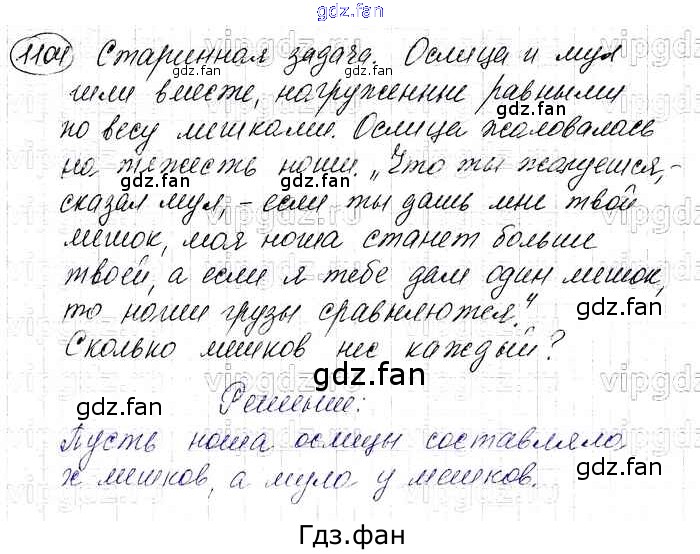 gdz.fan
1104 Старинная задача. Ослица и мул
шли вместе, нагруженные равными
по весу мешками. Ослица жаловалась
на тяжесть ноши. „Что ты жалуешься,-
сказал мул,- если ты дашь мне твой
мешок, моя ноша станет больше
твоей, а если я тебе дам один мешок,
то наши грузы сравняются."
Сколько мешков нес каждый?
Решение:
Пусть ноша ослицы составляла
x мешков, а мула у мешков.
gdz.fan
gdz.fan
gdz.fan
gdz.fan
gdz.fan
gdz.fan
gdz.fan
gdz.fan
gdz.fan
Гдз.фан